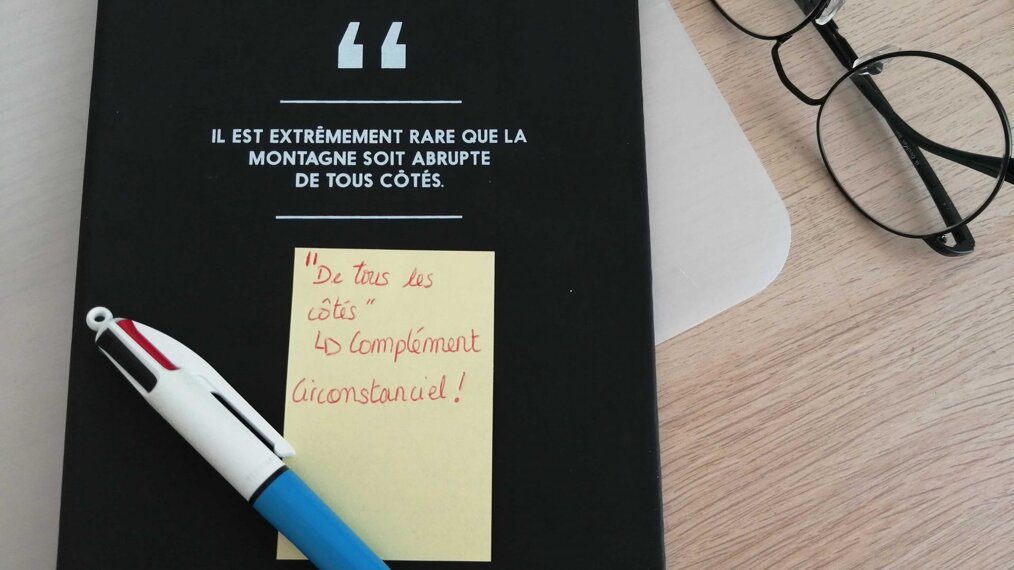 “
IL EST EXTRÊMEMENT RARE QUE LA
MONTAGNE SOIT ABRUPTE
DE TOUS CÔTÉS.
"De tous les
côtés"
↳ Complément
Circonstanciel !